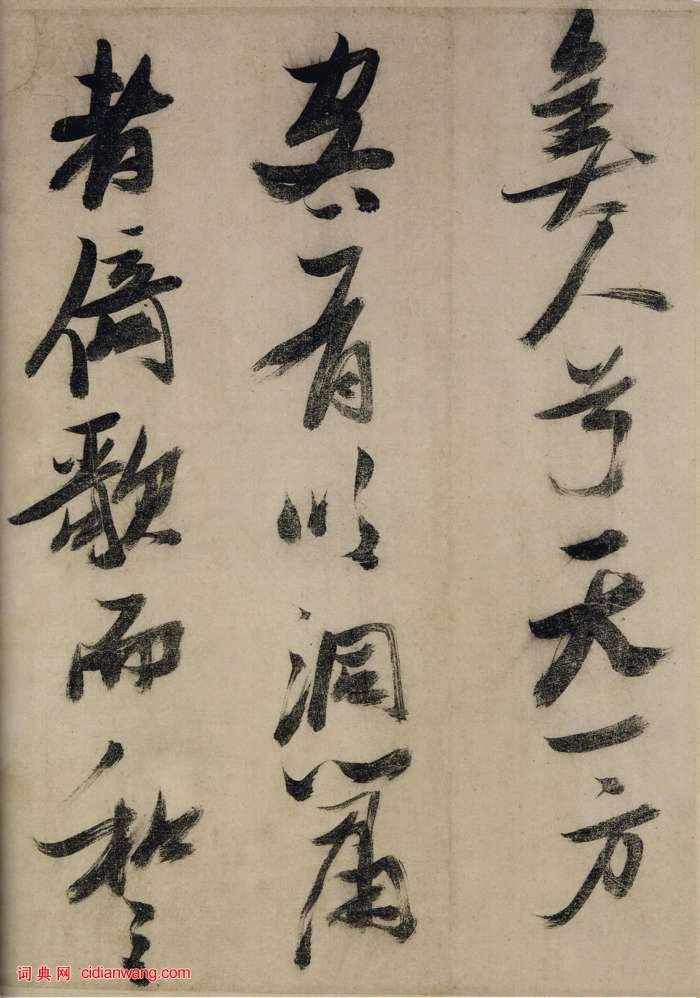 美人兮天一方
客有吹洞簫
者倚歌而和之
词典网 cidianwang.com